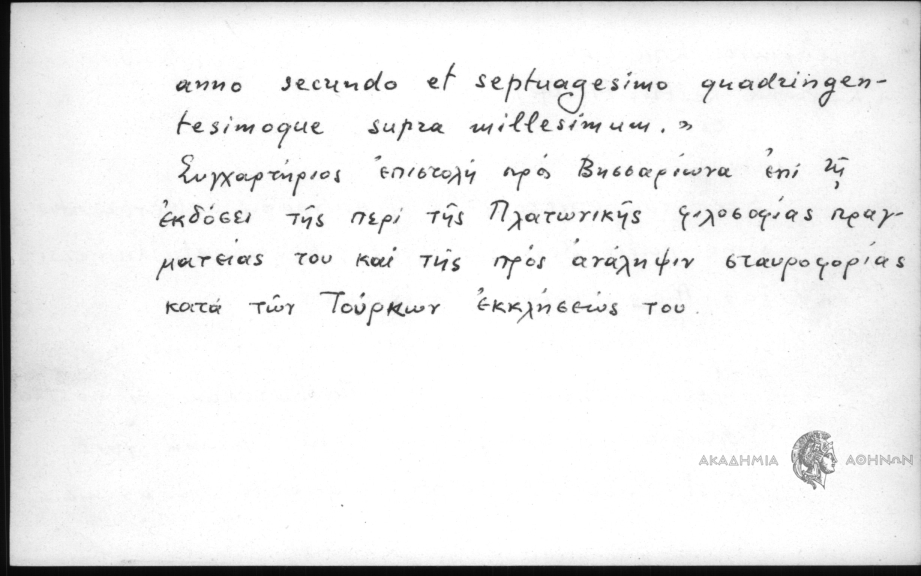 anno secundo et septuagesimo quadringen-
tesimoque supra millesimum.»
Συγχαρτήριος ἐπιστολή πρός Βησσαρίωνα ἐπί τῇ
ἐκδόσει τῆς περί τῆς Πλατωνικῆς φιλοσοφίας πραγ-
ματείας του καί τῆς πρός ἀνάληψιν σταυροφορίας
κατά τῶν Τούρκων ἐκκλήσεώς του.
ΑΚΑΔΗΜΙΑ ΑΘΗΝΩΝ